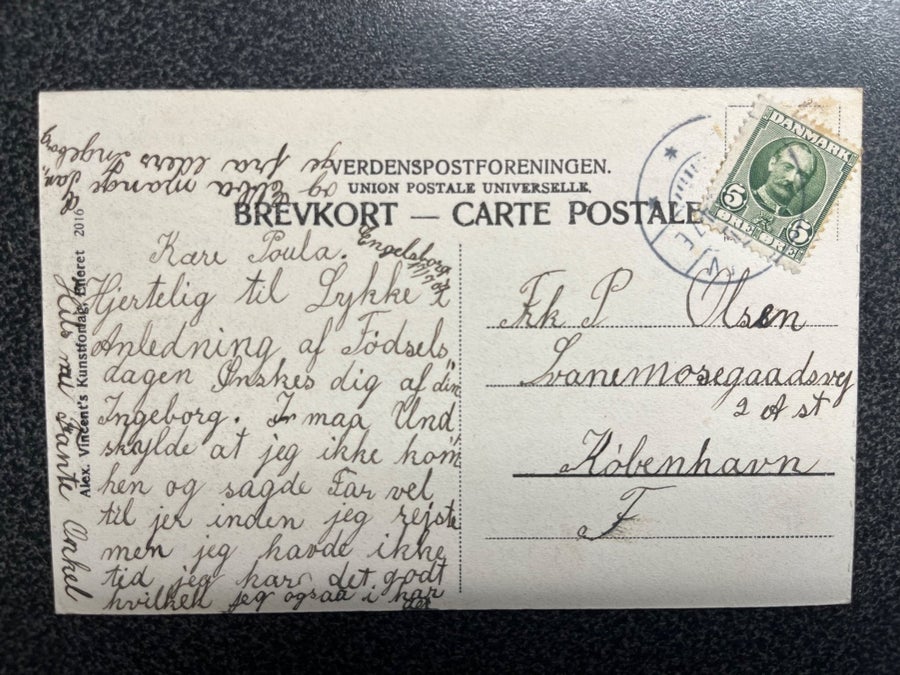 VERDENSPOSTFORENINGEN.
UNION POSTALE UNIVERSELLE.
BREVKORT — CARTE POSTALE
DANMARK
5 5
ØRE ØRE
Engelsborg
Kære Poula.
Hjertelig til Lykke i
Anledning af Fødsels
dagen Ønskes dig af din
Ingeborg. I maa Und
skylde at jeg ikke kom
hen og sagde Far vel
til jer inden jeg rejste
men jeg havde ikke
tid jeg har det godt
hvilken jeg ogsaa i har
det
Hils Tante Onkel
og Ebba mange
ge fra eders Ingeborg
Frk P Olsen
Svanemosegaadsvej
2 A st
København
F
Alex. Vincent's Kunstforlag, Eneret 2016